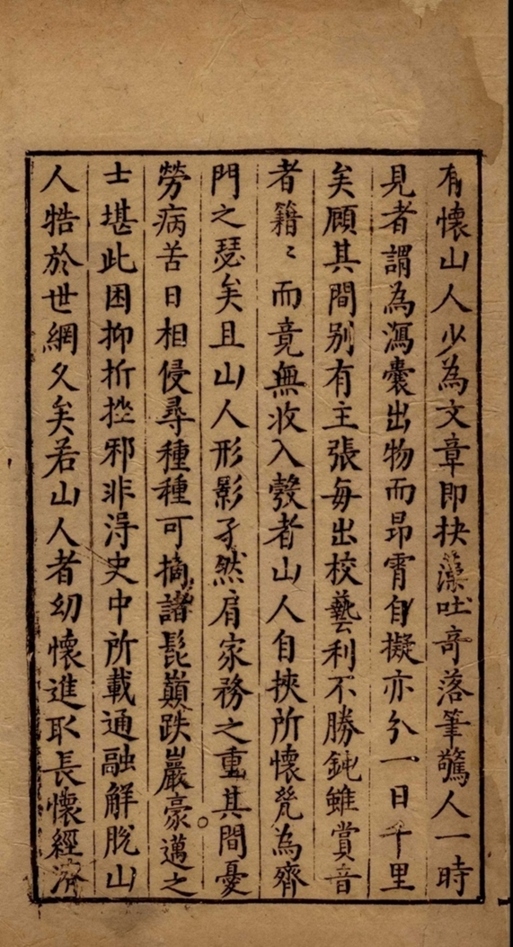 有懷山人少為文章即抉藻吐奇落筆驚人一時
見者謂為瀉囊出物而昂霄自擬亦久一日千里
矣顧其間別有主張每出校藝利不勝鈍雖賞音
者籍〻而竟無收入彀者山人自挾所懷凳為齊
門之瑟矣且山人形影孑然肩家務之重其間憂
勞病苦日相侵尋種種可摘諸髭巔跌巖豪邁之
士堪此困抑折挫邪非淂史中所載通融解脫山
人牿於世網久矣若山人者幼懷進取長懷經濟